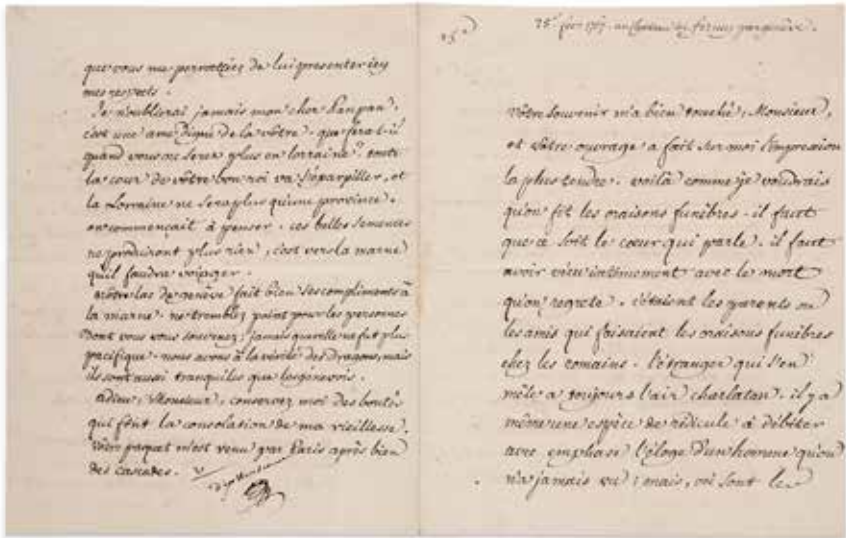 que vous me permettiez de lui presenter icy
mes respects.
Je n'oublierai jamais mon cher Panpan,
c'est une ame digne de la vôtre. que fera t-il
quand vous ne serez plus en lorraine? toute
la cour de vôtre bon roi va s'éparpiller, et
la Lorraine ne sera plus qu'une province.
on commençait à penser. ces belles semences
ne produiront plus rien, c'est vers la marne
qu'il faudra voiager.
nôtre lac de genêve fait bien ses compliments à
la marne. ne tremblez point pour les personnes
dont vous vous souvenez; jamais querelle ne fut plus
pacifique. nous avons à la vérité des Dragons, mais
ils sont aussi tranquiles que les génevois.
adieu, Monsieur, conservez moi des bontés
qui font la consolation de ma vieillesse.
Vôtre paquet m'est venu par Paris après bien
des cascades. V
25e
25e fevr 1767. au chateau de ferney par genêve.
Vôtre souvenir m'a bien touché, Monsieur,
et vôtre ouvrage a fait sur moi l'impression
la plus tendre. voilà comme je voudrais
qu'on fit les oraisons funêbres. il faut
que ce soit le coeur qui parle. il faut
avoir vécu intimement avec le mort
qu'on regrete. c'étaient les parents ou
les amis qui faisaient les oraisons funêbres
chez les romains. l'étranger qui s'en
mêle a toujours l'air charlatan. il y a
même une espèce de ridicule à débiter
avec emphase l'éloge d'un homme qu'on
n'a jamais vu; mais, où sont les